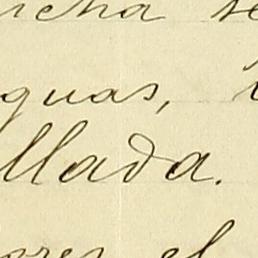 ncha se
guas,
llada.
ores el